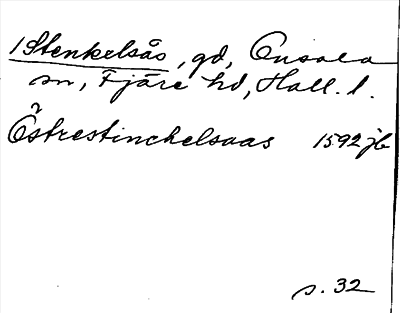 1 Stenkelsås, gd, Onsala
sn, Fjäre hd, Hall. l.
Östrestinckelsaas 1592 jb
s. 32